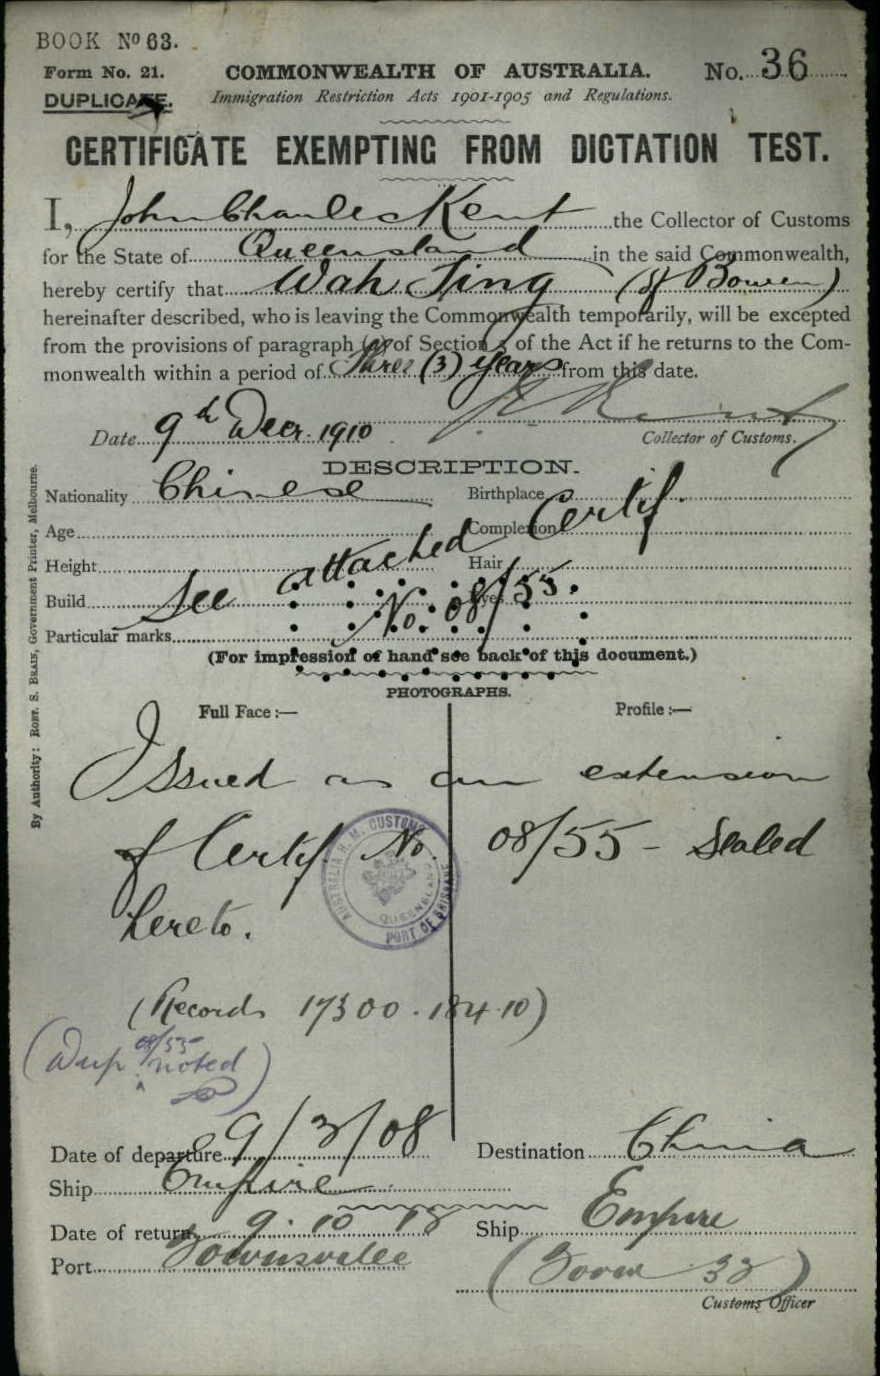 BOOK No 63.
Form No. 21. COMMONWEALTH OF AUSTRALIA. No. 36
DUPLICATE. Immigration Restriction Acts 1901-1905 and Regulations.
CERTIFICATE EXEMPTING FROM DICTATION TEST.
I, John Charles Kent the Collector of Customs
for the State of Queensland in the said Commonwealth,
hereby certify that Wah Sing (of Bowen)
hereinafter described, who is leaving the Commonwealth temporarily, will be excepted
from the provisions of paragraph (a) of Section 3 of the Act if he returns to the Com-
monwealth within a period of Three (3) years from this date.
Date 9th Decr 1910 Collector of Customs.
DESCRIPTION.
Nationality Chinese Birthplace
Age Complexion
Height Hair
Build Eyes
Particular marks
See attached Certif.
No. 08/55.
(For impression of hand see back of this document.)
PHOTOGRAPHS.
Full Face :— Profile :—
Issued as an extension
of Certif. No. 08/55 - sealed
hereto.
AUSTRALIA H. M. CUSTOMS
QUEENSLAND
PORT OF BRISBANE
(Records 17300 . 184 10)
(Dup 08/55 noted)
Date of departure 9/3/08 Destination China
Ship Empire
Date of return 9. 10 Ship Empire
Port Townsville
Customs Officer
By Authority: ROBT. S. BRAIN, Government Printer, Melbourne.